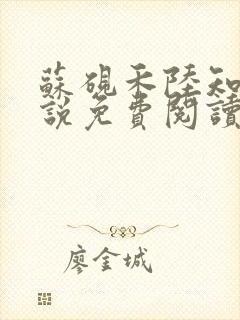 蘇硯禾陸知
說免費閱讀
廖金城